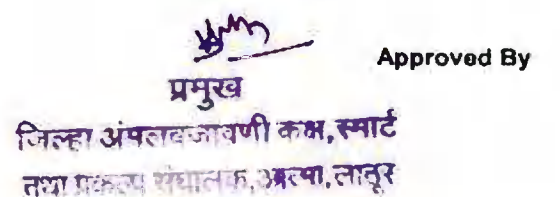 Approved By
प्रमुख
जिल्हा अंमलबजावणी कक्ष, स्मार्ट
तथा प्रकल्प संचालक, आत्मा, लातूर